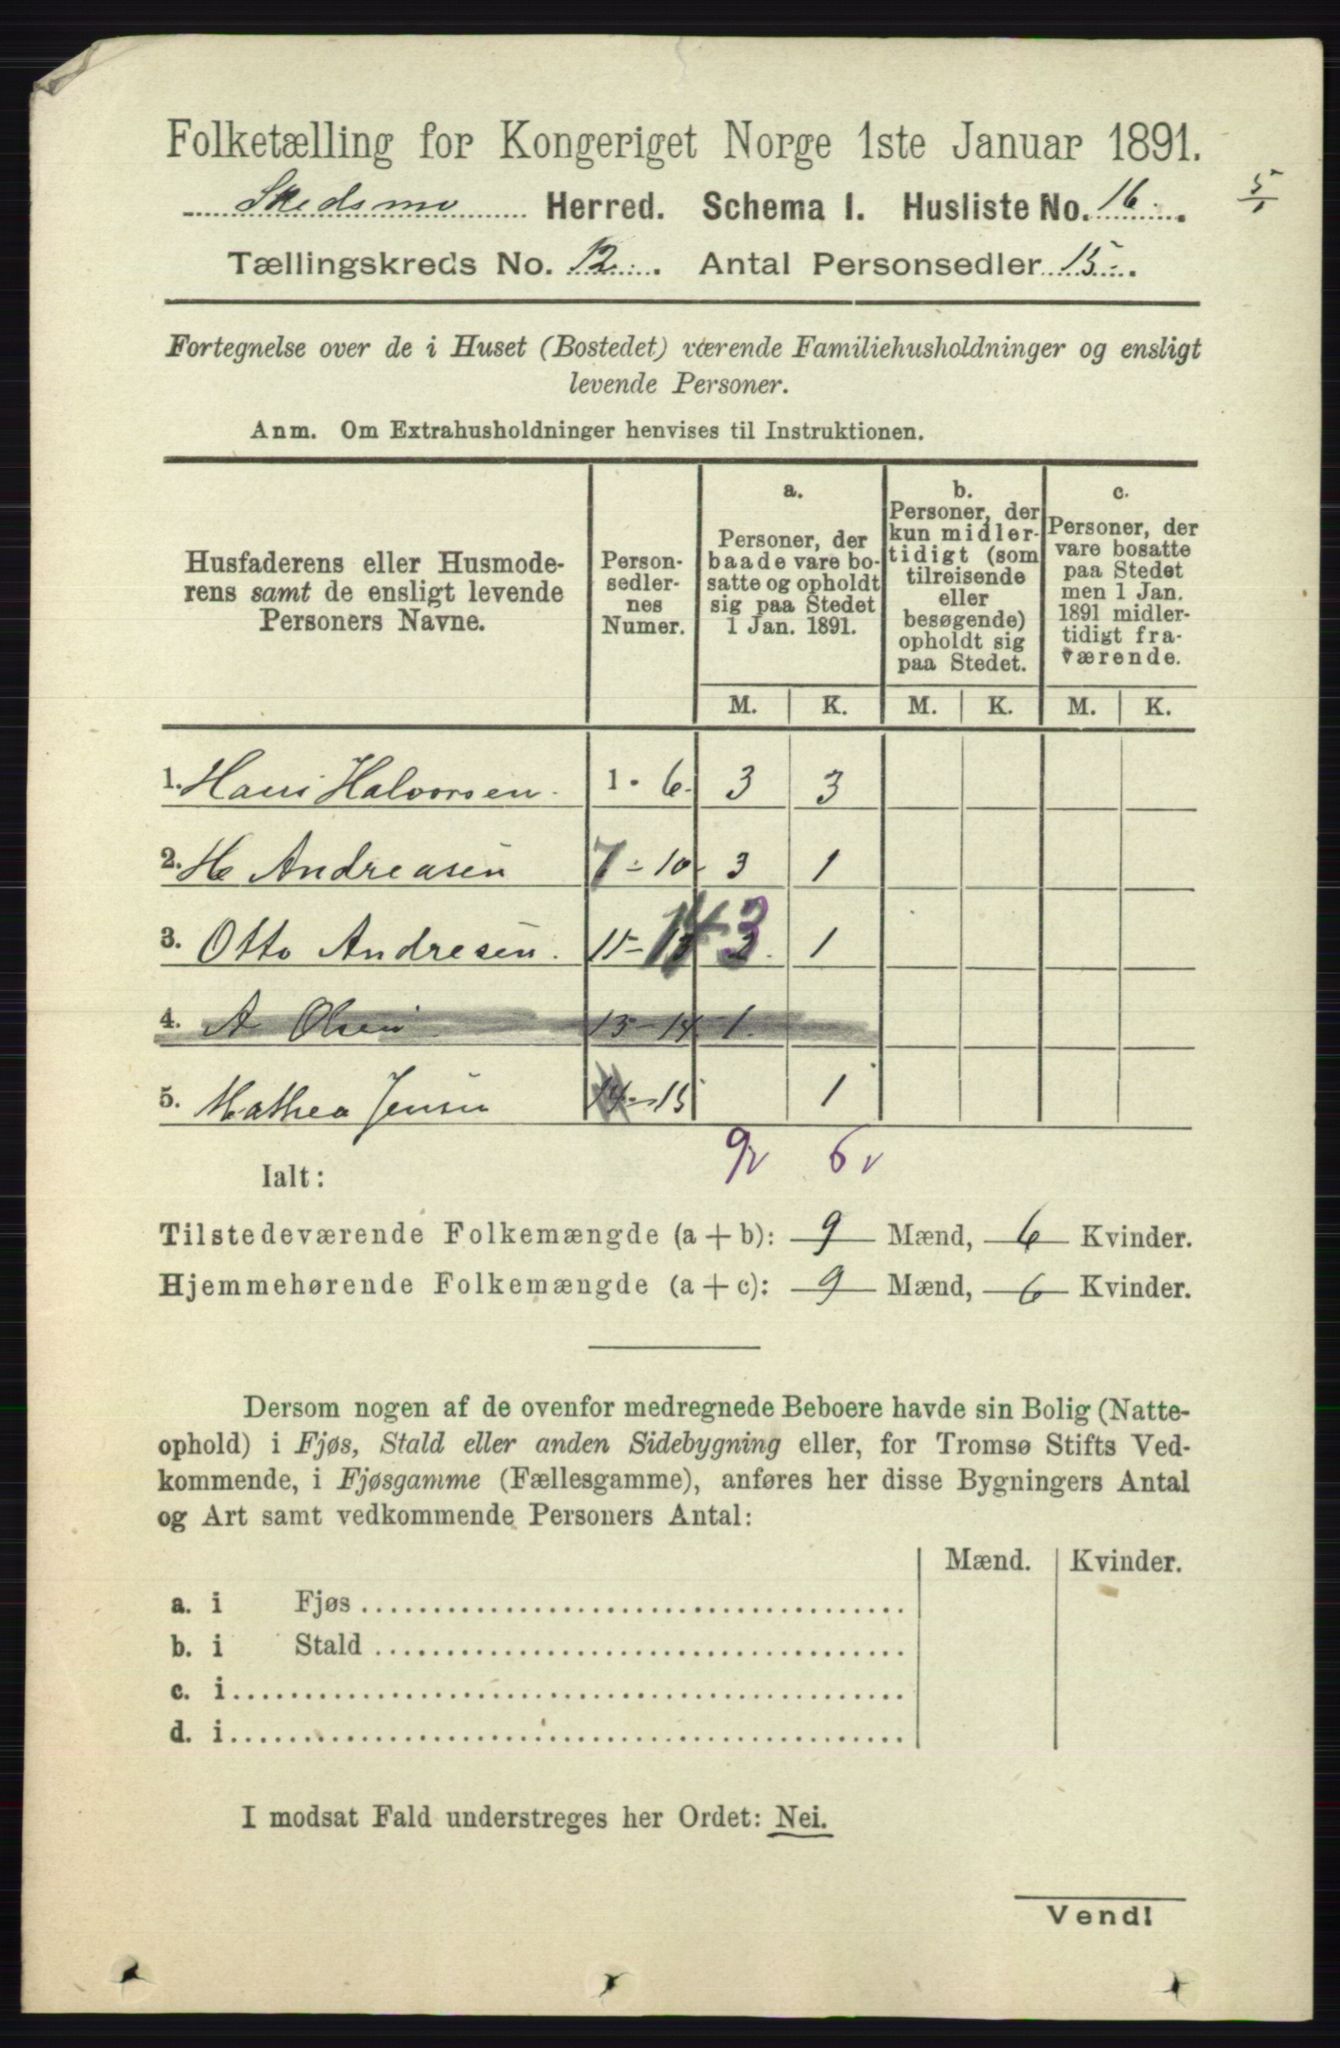 Folketælling for Kongeriget Norge 1ste Januar 1891.
Skedsmo Herred. Schema I. Husliste No. 16.
5/1
Tællingskreds No. 12. Antal Personsedler 15.
Fortegnelse over de i Huset (Bostedet) værende Familiehusholdninger og ensligt
levende Personer.
Anm. Om Extrahusholdninger henvises til Instruktionen.
Husfaderens eller Husmode-
rens samt de ensligt levende
Personers Navne.
Person-
sedler-
nes
Numer.
a.
Personer, der
baade vare bo-
satte og opholdt
sig paa Stedet
1 Jan. 1891.
b.
Personer, der
kun midler-
tidigt (som
tilreisende
eller
besøgende)
opholdt sig
paa Stedet.
c.
Personer, der
vare bosatte
paa Stedet
men 1 Jan.
1891 midler-
tidigt fra-
værende.
M. K. M. K. M. K.
1. Hans Halvorsen. 1 - 6. 3 3
2. H Andreasen 7 - 10 - 3 1
3. Otto Andresen. 11 - 14 3 1
4. A Olsen 13 - 14 1.
5. Mathea Jensen 14 - 15 1
9 6
Ialt:
Tilstedeværende Folkemængde (a + b): 9 Mænd, 6 Kvinder.
Hjemmehørende Folkemængde (a + c): 9 Mænd, 6 Kvinder.
Dersom nogen af de ovenfor medregnede Beboere havde sin Bolig (Natte-
ophold) i Fjøs, Stald eller anden Sidebygning eller, for Tromsø Stifts Ved-
kommende, i Fjøsgamme (Fællesgamme), anføres her disse Bygningers Antal
og Art samt vedkommende Personers Antal:
Mænd. Kvinder.
a. i Fjøs
b. i Stald
c. i
d. i
I modsat Fald understreges her Ordet: Nei.
Vend!